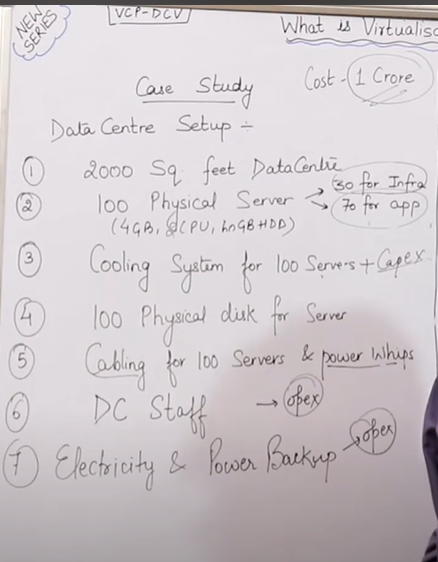 NEW SERIES
VCP-DCV
What is Virtualisa
Case Study
Cost - 1 Crore
Data Centre Setup :-
1 2000 Sq. feet DataCentre
2 100 Physical Server → 30 for Infra
→ 70 for app
(4GB, CPU, GB HDD)
3 Cooling System for 100 Servers + Capex
4 100 Physical disk for Server
5 Cabling for 100 Servers & power Whips
6 DC Staff → opex
7 Electricity & Power Backup → opex